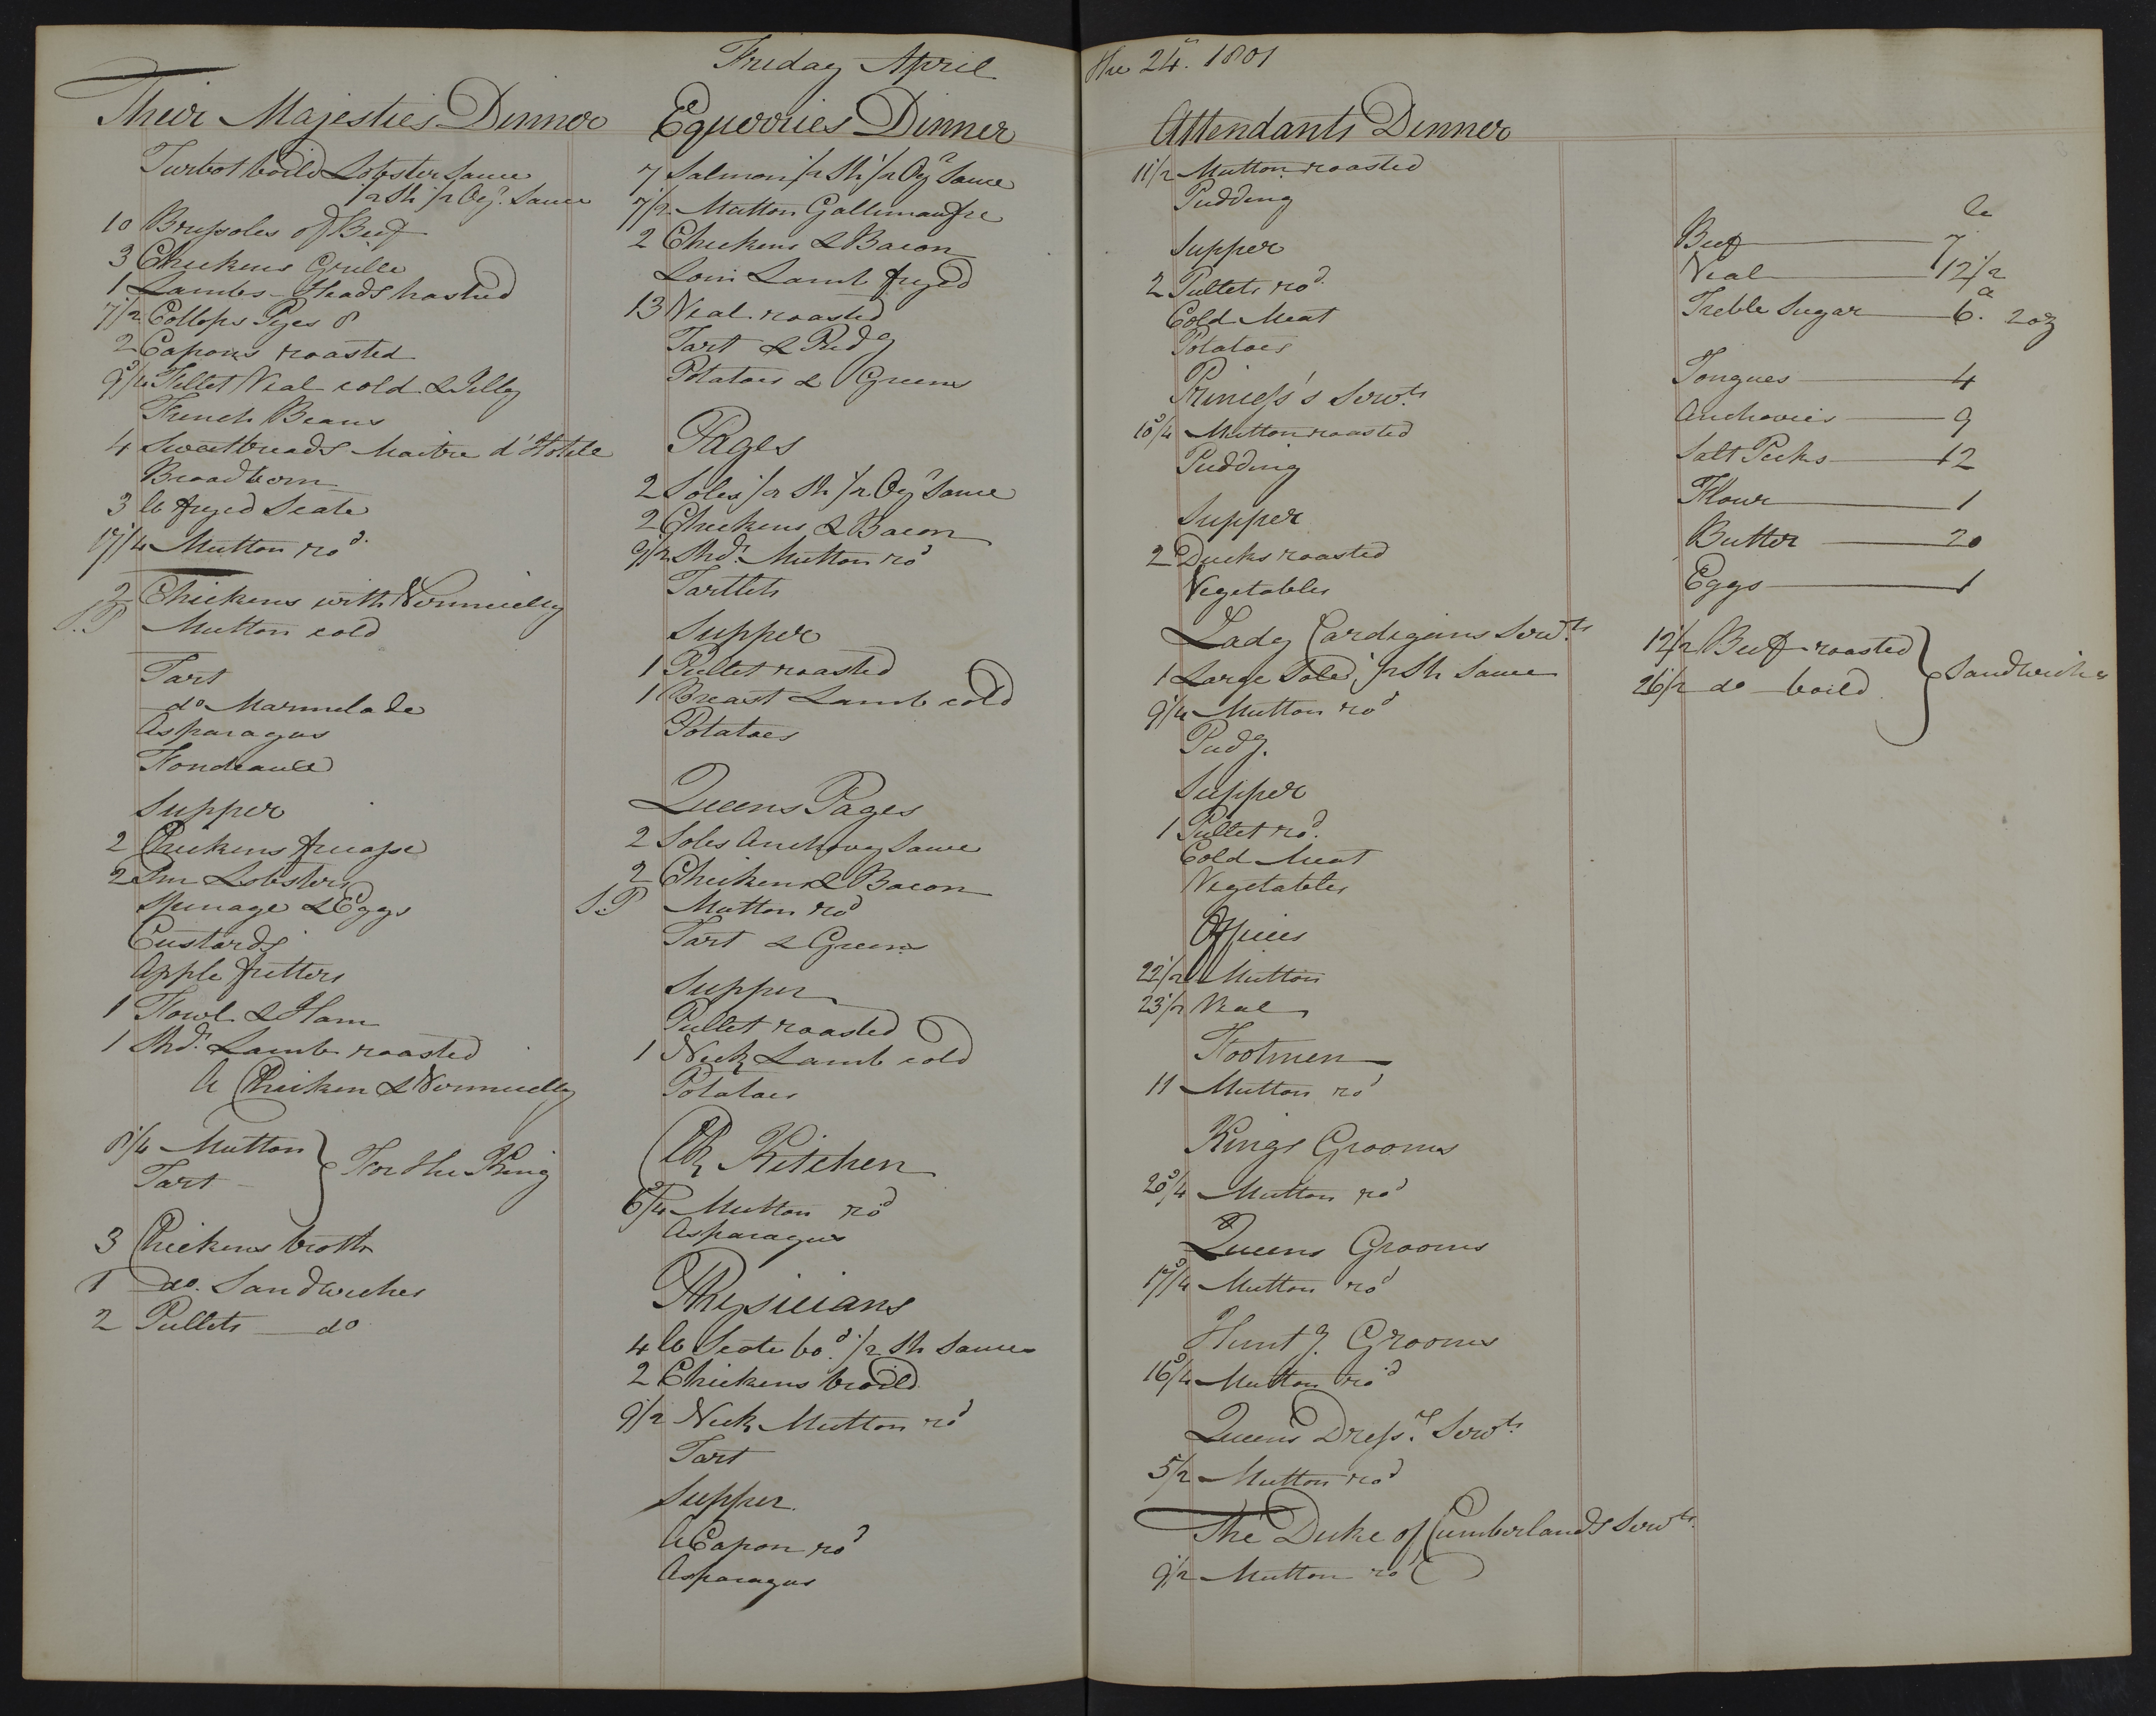 Friday April the 24th. 1801
Their Majesties Dinner
Turbot boild Lobster Sauce
1/2 Sh 1/2 Oyr. Sauce
10 Brussoles of Beef
3 Chickens Grille
1 Lambs Heads hashed
7 1/2 Collops Pyes 8
2 Capons roasted
9 3/4 Fillet Veal cold & Jelly
French Beans
4 Sweetbreads Maitre d'Hotele
3 lb fryed Scate
17 1/4 Mutton rod.
2 Chickens with Vermicelly
S.P Mutton cold
Tart
do Marmelade
Asparagus
Supper
2 Chickens fricasse
2 Lobsters
Spinage & Eggs
Custards
Apple fritters
1 Fowl & Ham
1 Shdr. Lamb roasted
A Chicken & Vermicelly
8 1/4 Mutton
Tart
For the King
3 Chickens broth
1 do. Sandwiches
2 Pullets do
Equerries Dinner
7 Salmon 1/2 Sh 1/2 Oyr Sauce
7 1/2 Mutton Gallimaufre
2 Chickens & Bacon
Loin Lamb fryed
13 Veal roasted
Tart & Pudg
Potatoes & Greens
Pages
2 Soles 1/2 Sh 1/2 Oyr Sauce
2 Chickens & Bacon
9 1/2 Shdr. Mutton rod
Tartlets
Supper
1 Pullet roasted
1 Breast Lamb cold
Potatoes
Queens Pages
2 Soles Anchovy Sauce
2 Chickens & Bacon
S.P Mutton rod
Tart & Greens
Supper
Pullet roasted
1 Neck Lamb cold
Potatoes
Ck Kitchen
6 3/4 Mutton rod
Asparagus
Physicians
4 lb Scate bod. 1/2 Sh Sauce
2 Chickens broild
9 1/2 Neck Mutton rod
Tart
Supper.
A Capon rod
Asparagus
Attendants Dinner
11 1/2 Mutton roasted
Pudding
Supper
2 Pullets rod.
Cold Meat
Potatoes
Princess's Servts.
10 3/4 Mutton roasted
Pudding
Supper
2 Ducks roasted
Vegetables
Lady Cardigans Servts.
1 Large Sole, 1/2 Sh Sauce
9 1/4 Mutton rod
Pudg.
Supper
1 Pullet rod.
Cold Meat
Vegetables
Offices
22 1/2 Mutton
23 1/2 Veal
Footmen
11 Mutton rod
Kings Grooms
20 3/4 Mutton rod
Queens Grooms
17 3/4 Mutton rod
Huntg. Grooms
16 3/4 Mutton rod
Queens Dressr. Servts.
5 1/2 Mutton rod
The Duke of Cumberlands Servts.
9 1/2 Mutton rod
lb
Beef 7
Veal 12 1/2
Treble Sugar 6. 2oz
Tongues 4
Anchovies 9
Salt Pecks 12
Flour 1
Butter 20
Eggs 1
12 1/2 Beef roasted
26 1/2 do boild
Sandwiches